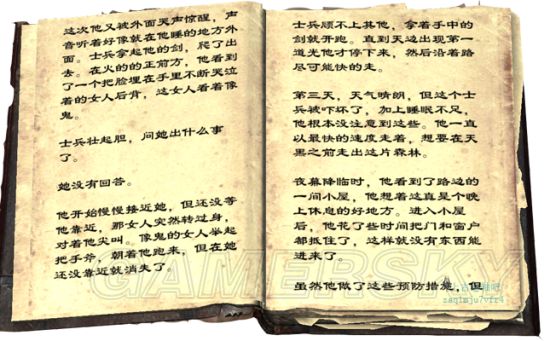 这次他又被外面哭声惊醒,声
音听着好像就在他睡的地方外
面。士兵拿起他的剑,爬了出
去。在火的的正前方,他看到
了一个把脸埋在手里不断哭泣
着的女人后背,这女人看着像
鬼。
士兵壮起胆,问她出什么事
了。
她没有回答。
他开始慢慢接近她,但还没等
他靠近,那女人突然转过身,
对着他尖叫。像鬼的女人举起
把手斧,朝着他跑来,但在她
还没靠近就消失了。
士兵顾不上其他,拿着手中的
剑就开跑。直到天边出现第一
道光他才停下来,然后沿着路
尽可能快的走。
第三天,天气晴朗,但这个士
兵被吓坏了,加上睡眠不足,
他根本没注意到这些。他一直
以最快的速度走着,想要在天
黑之前走出这片森林。
夜幕降临时,他看到了路边的
一间小屋,他想着这真是个晚
上休息的好地方。进入小屋
后,他花了些时间把门和窗户
都抵住了,这样就没有东西能
进来了。
虽然他做了这些预防措施,但
GAMERSKY
zaq1mju7vfr4